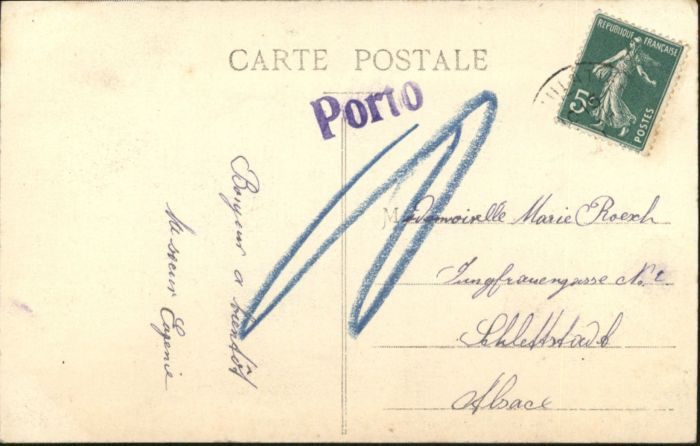 CARTE POSTALE
Porto
REPUBLIQUE FRANÇAISE
5c
POSTES
Bonjour a bientôt
Ma soeur Eugenie
Mademoiselle Marie Roesch
Jungfrauengasse No
Schlettstadt
Alsace